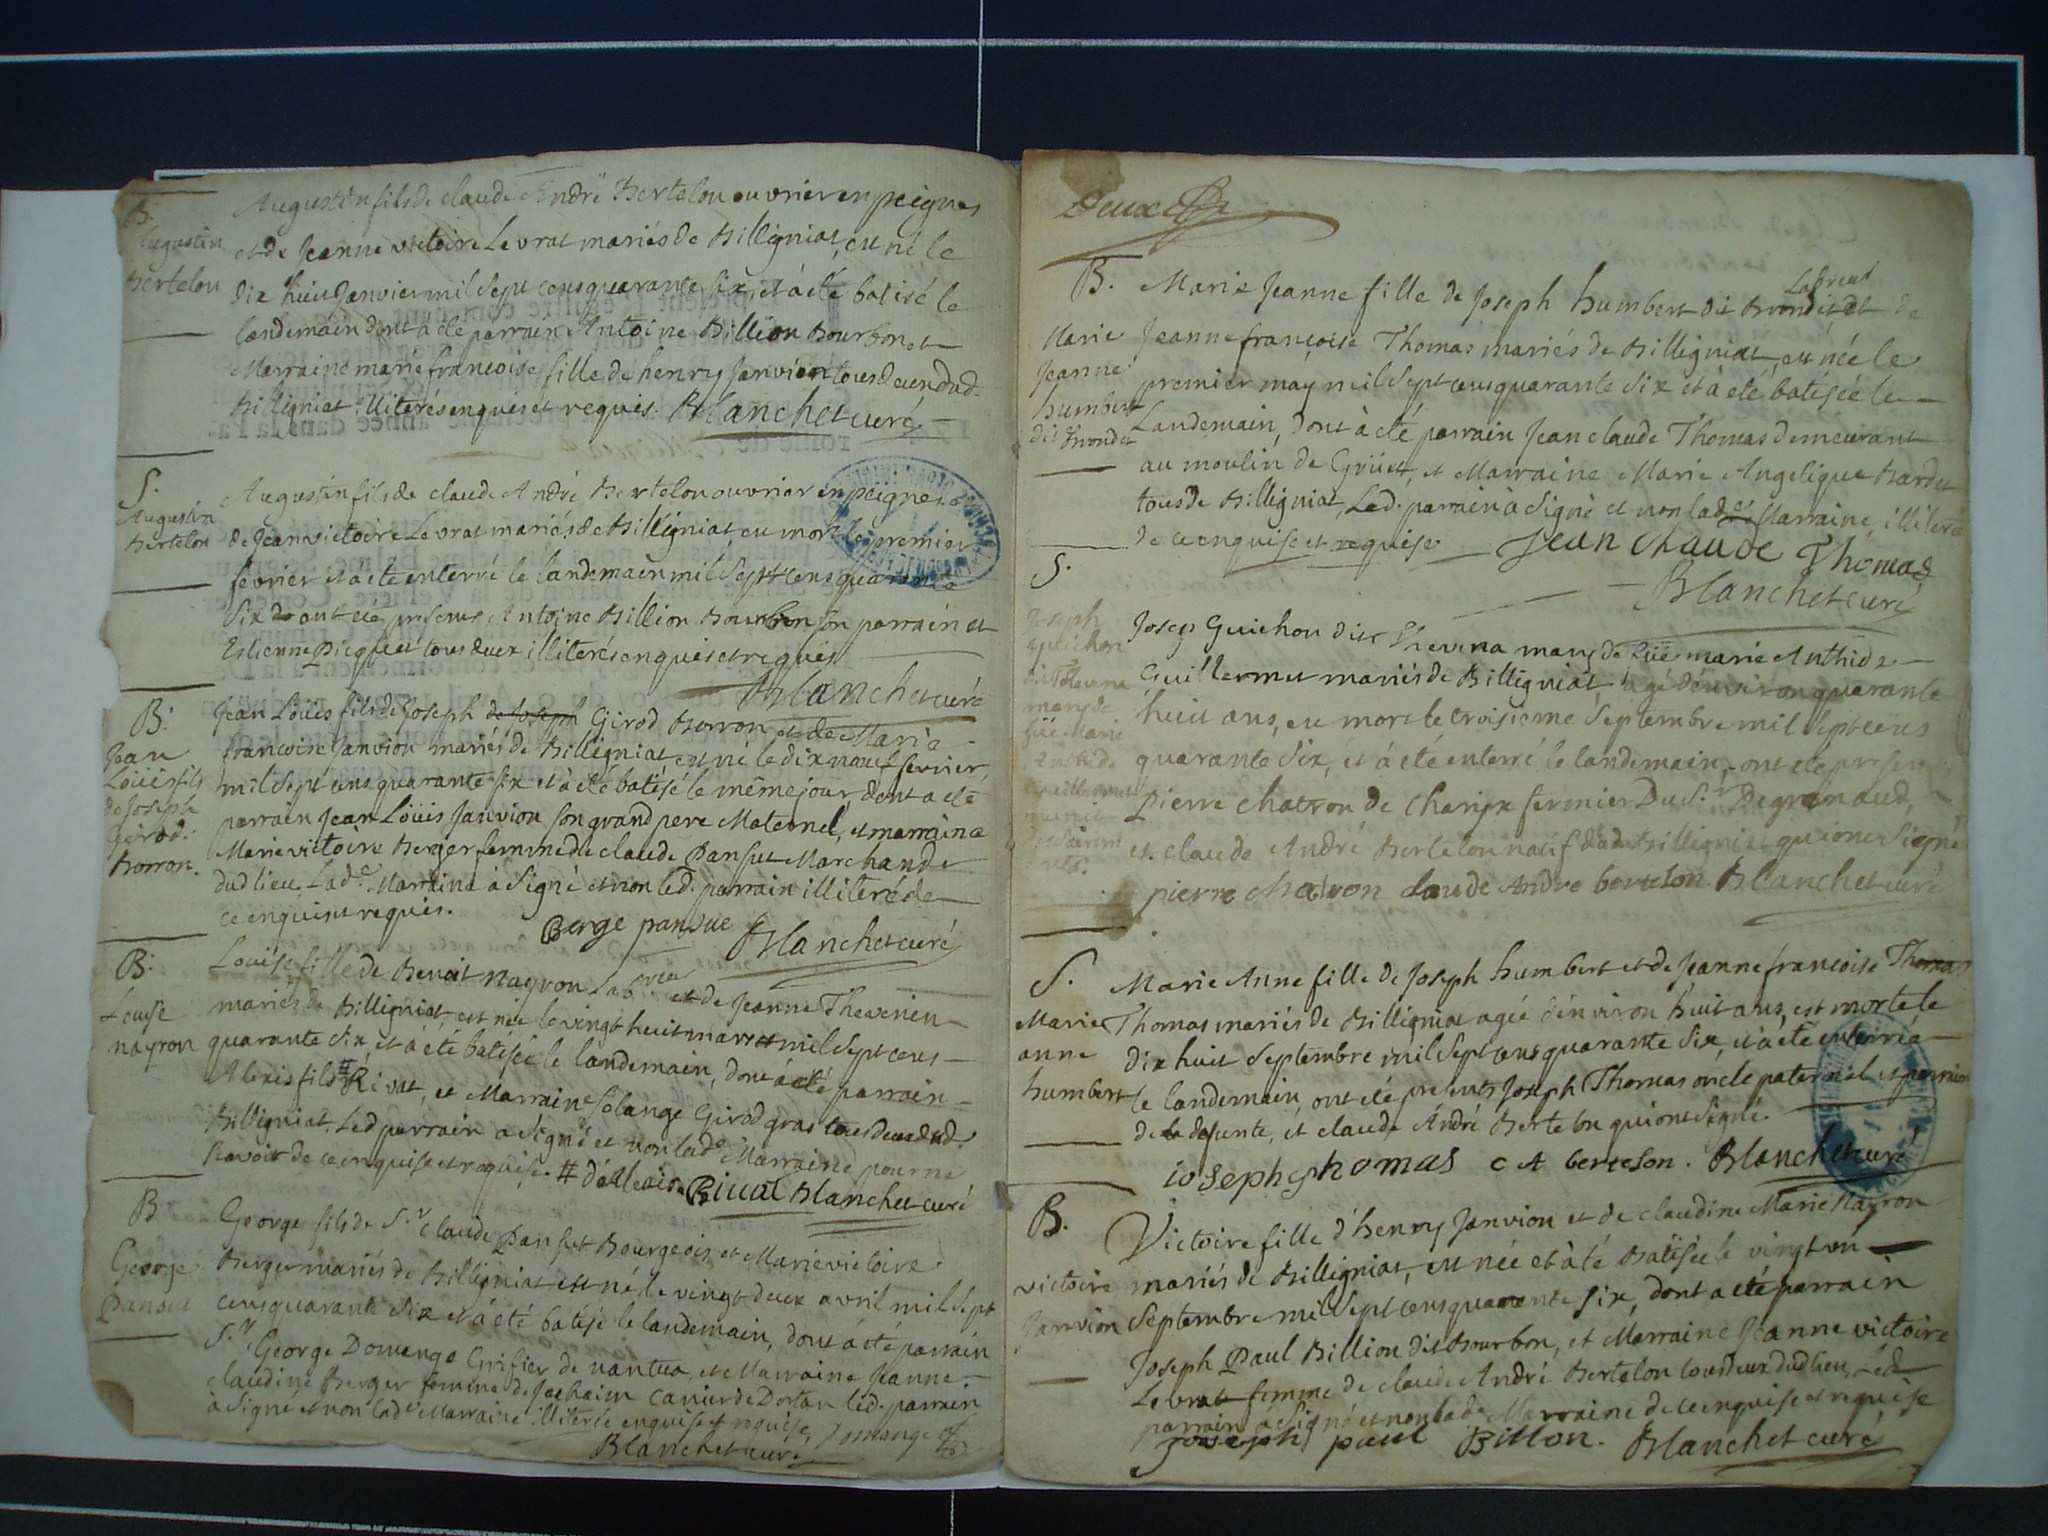 B.
Augustin
Bertelou
Augustin fils de claude André Bertelou ouvrier en peignes
et de Jeanne victoire Levrat mariés de Billigniat, est né le
dix huit Janvier mil sept cens quarante six, et à été batisé le
landemain dont à été parrain Antoine Billion Bourbon et
Marraine marie francoise fille de henry Janvion tous deux dud.
Billigniat illiterés enquis et requis. Blanchet curé
S.
Augustin
Bertelou
Augustin fils de claude André Bertelou ouvrier en peignes et
de Jeanne victoire Levrat mariés de Billigniat, est mort le premier
fevrier et à été enterré le landemain mil sept cens quarante
six ont été presens Antoine Billion Bourbon son parrain et
Estienne Picquet tous deux illiterés enquis et requis
Blanchet curé
B.
Jean
Loüis fils
de Joseph
Girod
Borron.
Jean Loüis fils de Joseph de Joseph Girod Borron et de Marie
francoise Janvion mariés de Billigniat est né le dix neuf fevrier
mil sept cens quarante six et à été batisé le même jour, dont a été
parrain Jean Loüis Janvion son grand pere Maternel, et marraine
Marie victoire Berger femme de claude Pansut Marchand
dud lieu, Lad.e Marraine à signé et non led. parrain illiteré de
ce enquis et requis.
Berge pansue Blanchet curé
B.
Louise
nayron
Louise fille de Benoit Nayron Laboreur et de Jeanne Thevenin
mariés de Billigniat, est née le vingt huit mars mil sept cens
quarante six et à été batisée le landemain, dont à été parrain
Alexis fils # Rivat, et Marraine Solange Girod gras tous deux dud.
Billigniat. Led parrain a signé et non lad.e Marraine pour ne
scavoir de ce enquise et requise. # d'Alexis Rivat Blanchet curé
B
George
Pansut
George fils de S.r claude Pansut Bourgeois, et Marie victoire
Berger mariés de Billigniat est né le vingt deux avril mil sept
cens quarante six et à été batisé le landemain, dont à été parrain
S.r George Domange Grifier de nantua, et Marraine Jeanne
claudine Berger femme de Joachim Canier de Dortan led. parrain
à signé et non lad.e Marraine illiterée enquise et requise, Domange
Blanchet curé
Deux
B.
Marie
Jeanne
humbert
dit Brondet
Laboreur
Marie Jeanne fille de Joseph humbert dit Brondet et de
Jeanne françoise Thomas mariés de Billigniat, est née le
premier may mil sept cens quarante six et à été batisée le
Landemain, dont à été parrain Jean claude Thomas demeurant
au moulin de Grüet, et Marraine Marie Angelique Bardet
tous de Billigniat, Led. parrain à signé et non lad.e Marraine illiterée
de ce enquise et requise Jean Claude Thomas
Blanchet curé
S.
Joseph
guichon
dit Thevena
mary de
füe Marie
Anth.de
Guillermet
Josep Guichon dit Thevena mary de füe marie Anthide
Guillermet mariés de Billigniat agé d'environ quarante
huit ans, est mort le troisieme Septembre mil sept cens
quarante six, et à été enterré le landemain, ont été presens
Pierre chatron de Charix fermier Du S.r Degrenaud,
et claude André Bertelon natif dud Billigniat qui ont signé
pierre chatron claude Andre bertelon Blanchet curé
S.
Marie
anne
humbert
Marie Anne fille de Joseph humbert et de Jeanne francoise Thomas
Thomas mariés de Billigniat agée d'environ huit ans, est morte le
dix huit Septembre mil sept cens quarante six, et à été enterrée
le landemain, ont été presens Joseph Thomas oncle paternel et parrain
de la defunte, et claude André Bertelon qui ont signé.
ioseph thomas C A berteson. Blanchet curé
B.
victoire
Janvion
Victoire fille d'henry Janvion et de claudine Marie Nayron
mariés de Billigniat, est née et à été batisée le vingt un
Septembre mil sept cens quarante six, dont a été parrain
Joseph Paul Billion dit Bourbon, et Marraine Jeanne victoire
Levrat femme de claude André Bertelon tous deux dud lieu, Led
parrain à signé et non lad.e Marraine de ce enquise et requise
Joseph paul Billon. Blanchet curé